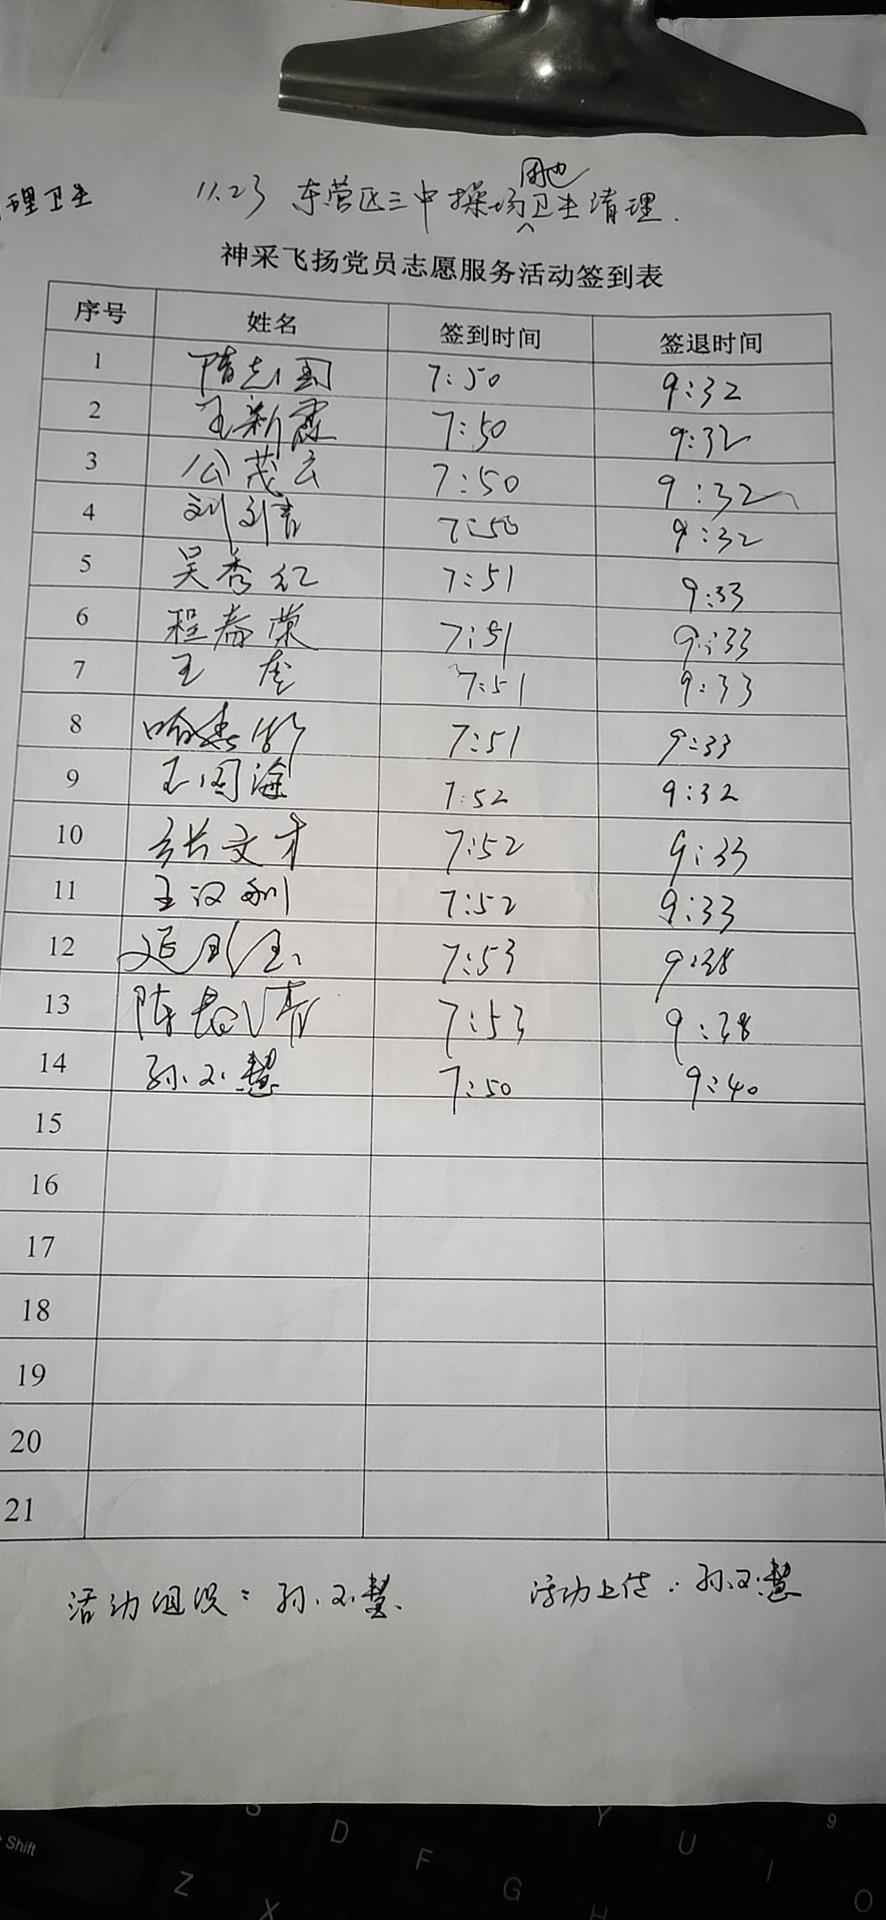 理卫生
11.23 东营区三中操场周边卫生清理.
神采飞扬党员志愿服务活动签到表
序号 姓名 签到时间 签退时间
1 隋志国 7:50 9:32
2 王新霞 7:50 9:32
3 公茂云 7:50 9:32
4 刘 7:50 9:32
5 吴秀红 7:51 9:33
6 程春荣 7:51 9:33
7 王 7:51 9:33
8 7:51 9:33
9 王国海 7:52 9:32
10 张文才 7:52 9:33
11 王汉利 7:52 9:33
12 7:53 9:38
13 陈 7:53 9:38
14 孙文慧 7:50 9:40
15
16
17
18
19
20
21
活动组织: 孙文慧
活动上传: 孙文慧
Shift
S
D
F
G
H
Y
U
I
O
9
Z
X